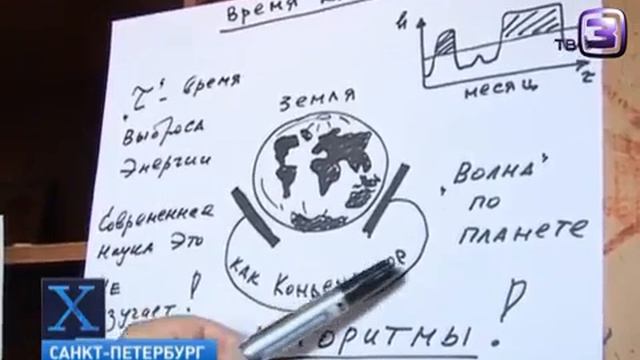 Время
ТВ3
h
месяц
τ
"τ" - время
выброса
энергии
Земля
"Волна"
по
планете
Современная
наука это
не
изучает!
как
!
алгоритмы!
X
САНКТ-ПЕТЕРБУРГ